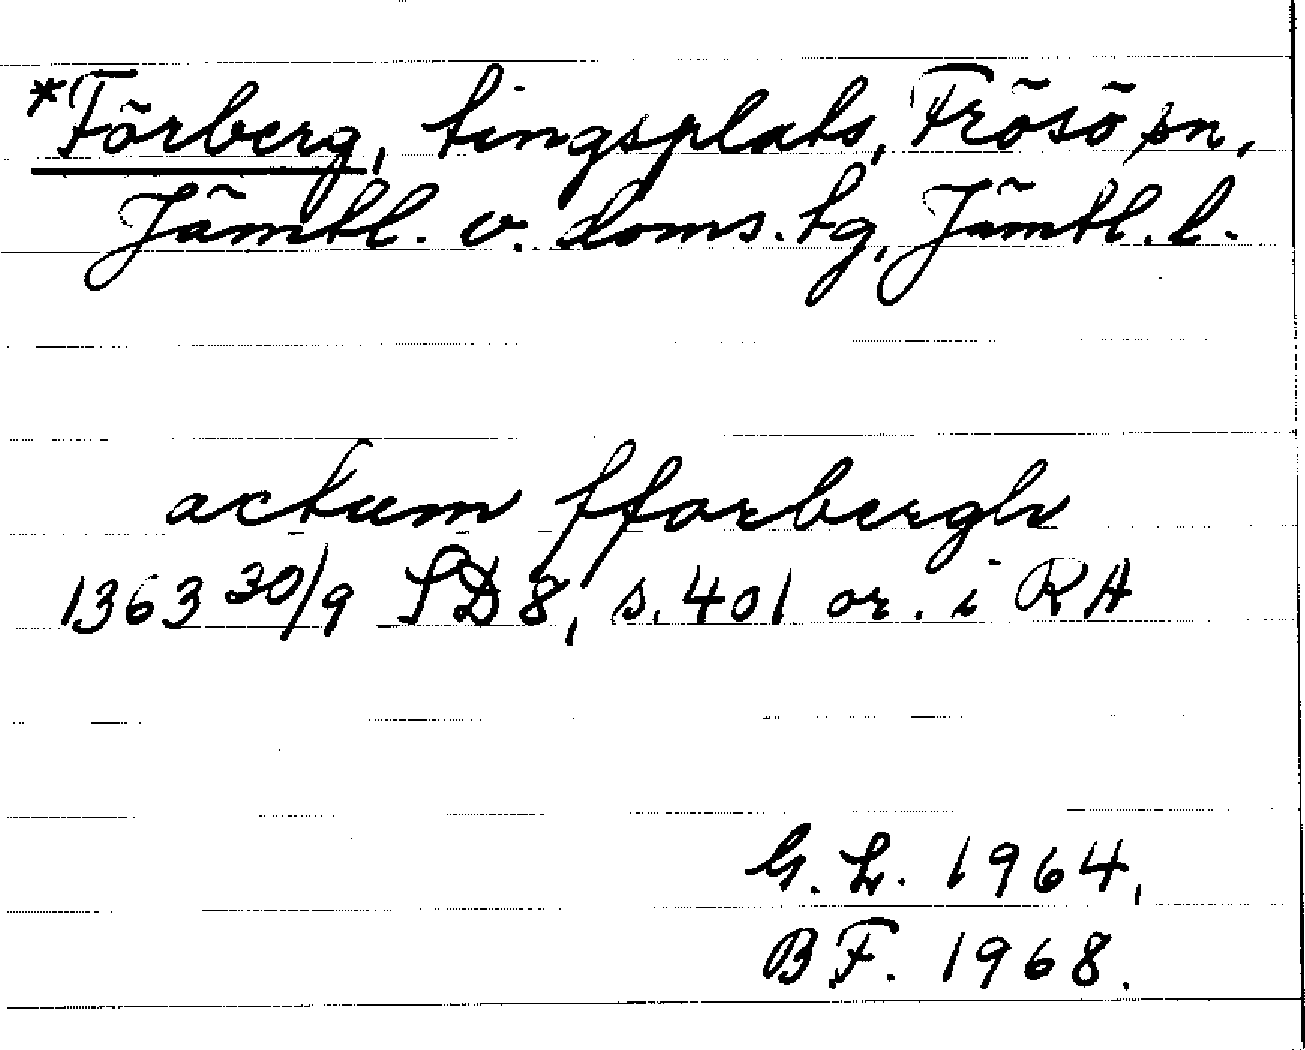 *Förberg, tingsplats, Frösö sn,
Jämtl. v. doms. tg, Jämtl. l.
actum fforbergh
1363 30/9 SD 8, s. 401 or. i RA
G. L. 1964,
B F. 1968.